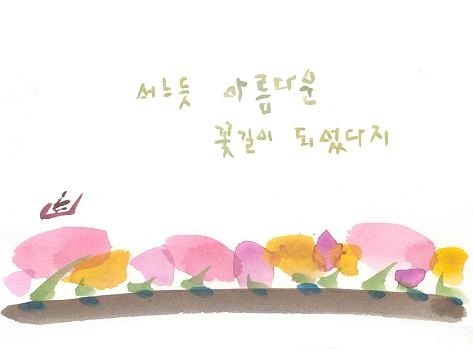 서느듯 아름다운
꽃길이 되었다지